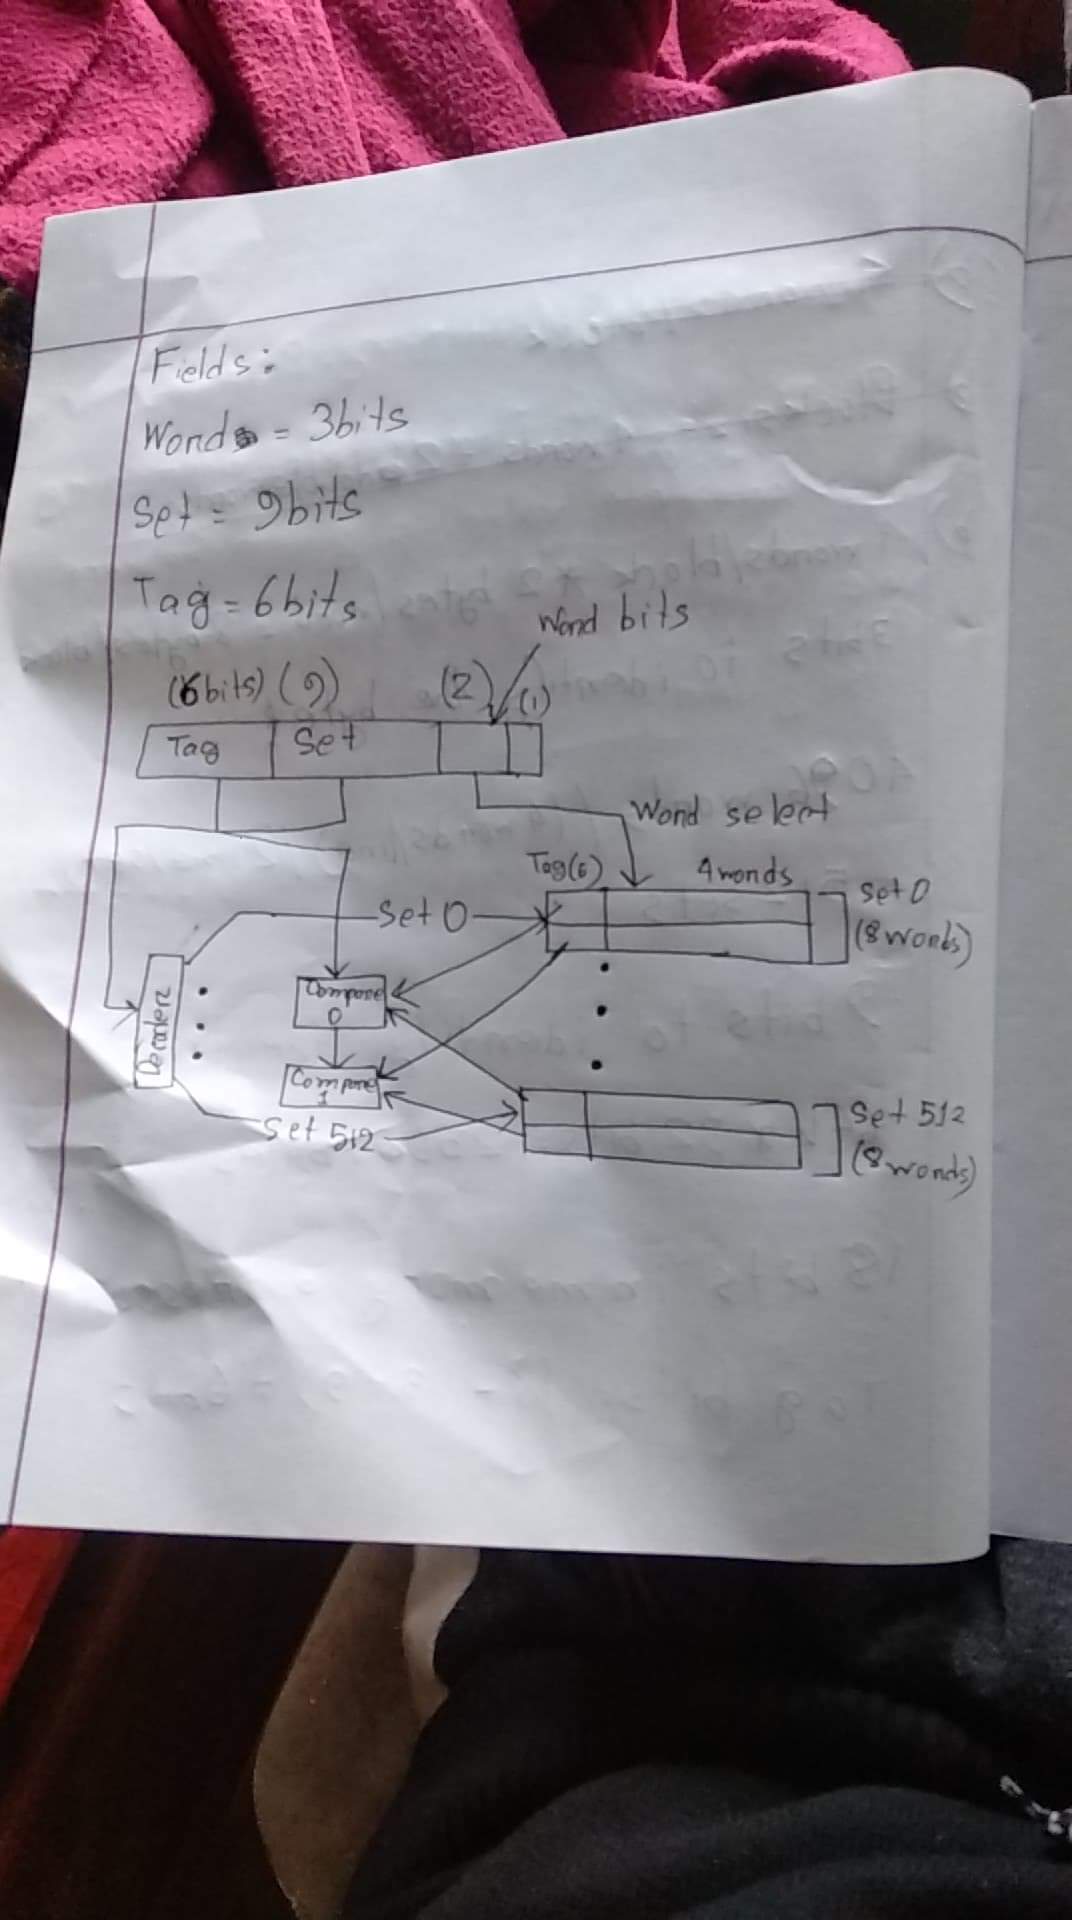 Fields:
Word = 3bits
Set = 9bits
Tag = 6bits
Word bits
(6bits) (9) (2) (1)
Tag Set
Word select
Tag(6) 4 words
Set 0 Set 0
(8 words)
Compare
0
Decoder
Compare
1
Set 512 Set 512
(8 words)